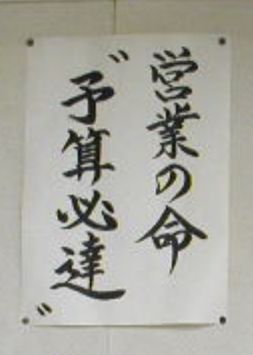 営業の命
〝予算必達〟